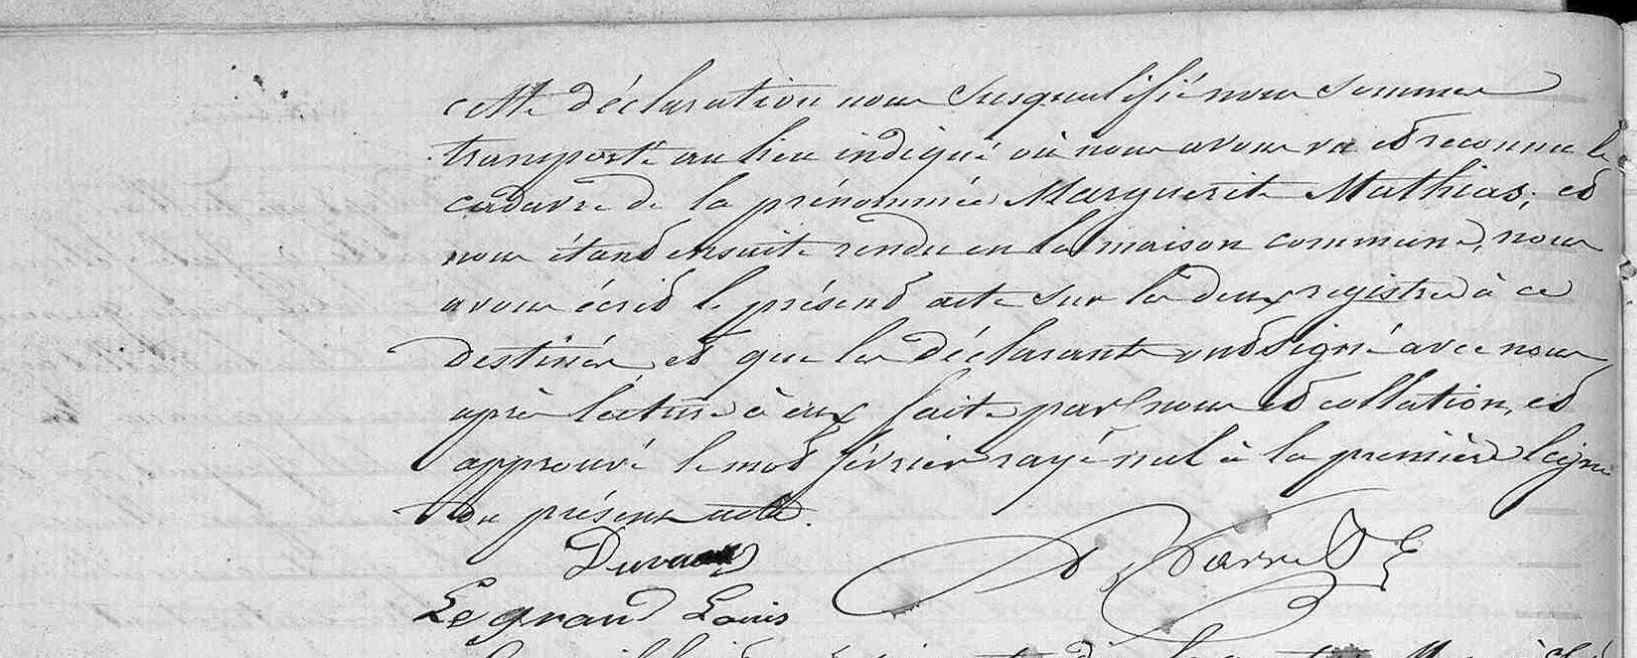 cette déclaration nous susqualifié nous sommes
transporté au lieu indiqué où nous avons vu et reconnu le
cadavre de la prénommée Marguerite Mathias; et
nous étant ensuite rendu en la maison commune, nous
avons écrit le présent acte sur les deux registres à ce
destinés et que les déclarants ont signé avec nous
après lecture à eux faite par nous et collation, et
approuvé le mot février rayé nul à la première ligne
du présent acte.
Le grand Louis